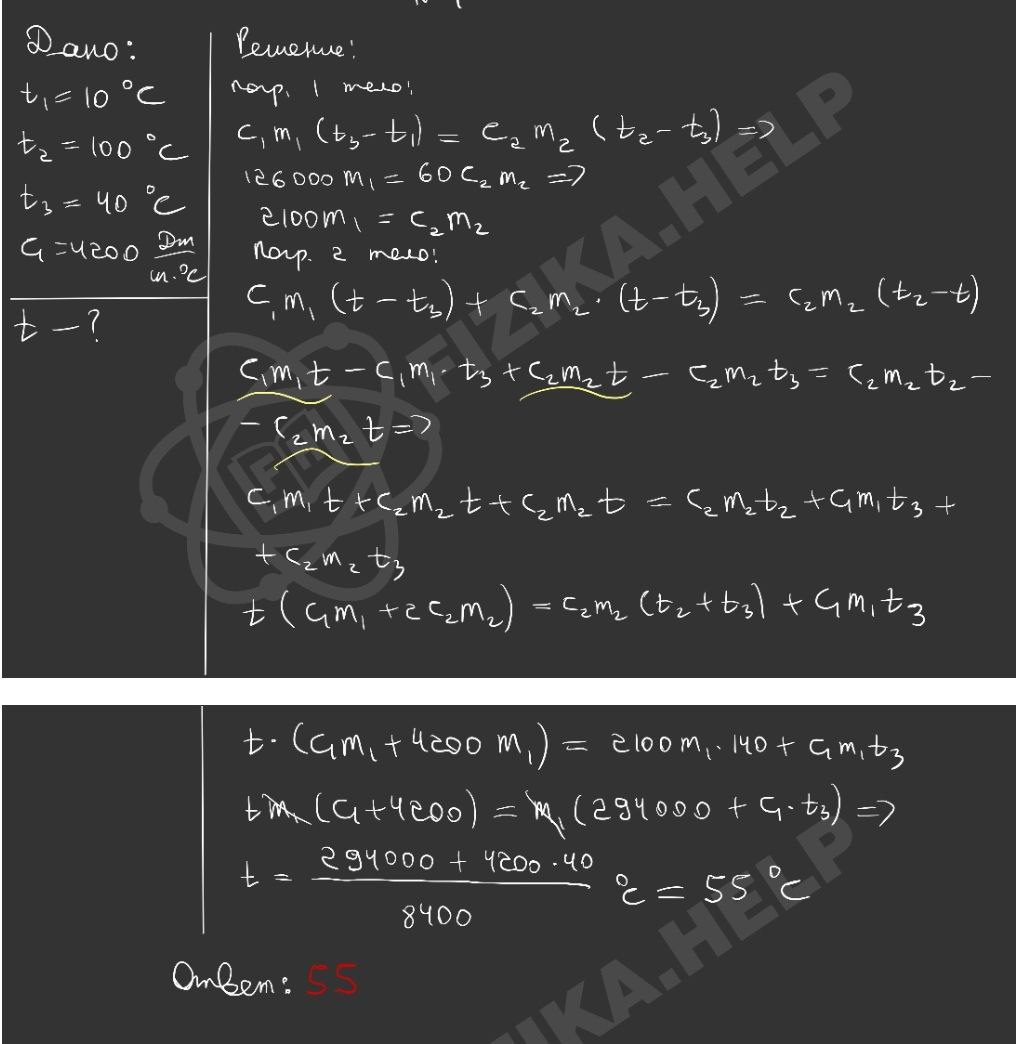 Дано:
t₁ = 10 °C
t₂ = 100 °C
t₃ = 40 °C
C₁ = 4200 Дж/кг·°C
t – ?
Решение:
погр. 1 тело:
C₁m₁ (t₃ – t₁) = C₂m₂ (t₂ – t₃) =>
126000 m₁ = 60 C₂m₂ =>
2100m₁ = C₂m₂
Погр. 2 тело:
C₁m₁ (t – t₃) + C₂m₂· (t – t₃) = C₂m₂ (t₂ – t)
C₁m₁t – C₁m₁· t₃ + C₂m₂t – C₂m₂t₃ = C₂m₂t₂ –
– C₂m₂t =>
C₁m₁t + C₂m₂t + C₂m₂t = C₂m₂t₂ + C₁m₁t₃ +
+ C₂m₂t₃
t (C₁m₁ + 2C₂m₂) = C₂m₂ (t₂ + t₃) + C₁m₁t₃
t· (C₁m₁ + 4200 m₁) = 2100m₁· 140 + C₁m₁t₃
tm₁ (C₁ + 4200) = m₁ (294000 + C₁· t₃) =>
t = (294000 + 4200·40)/8400 °C = 55 °C
Ответ: 55
FIZIKA.HELP
FIZIKA.HELP